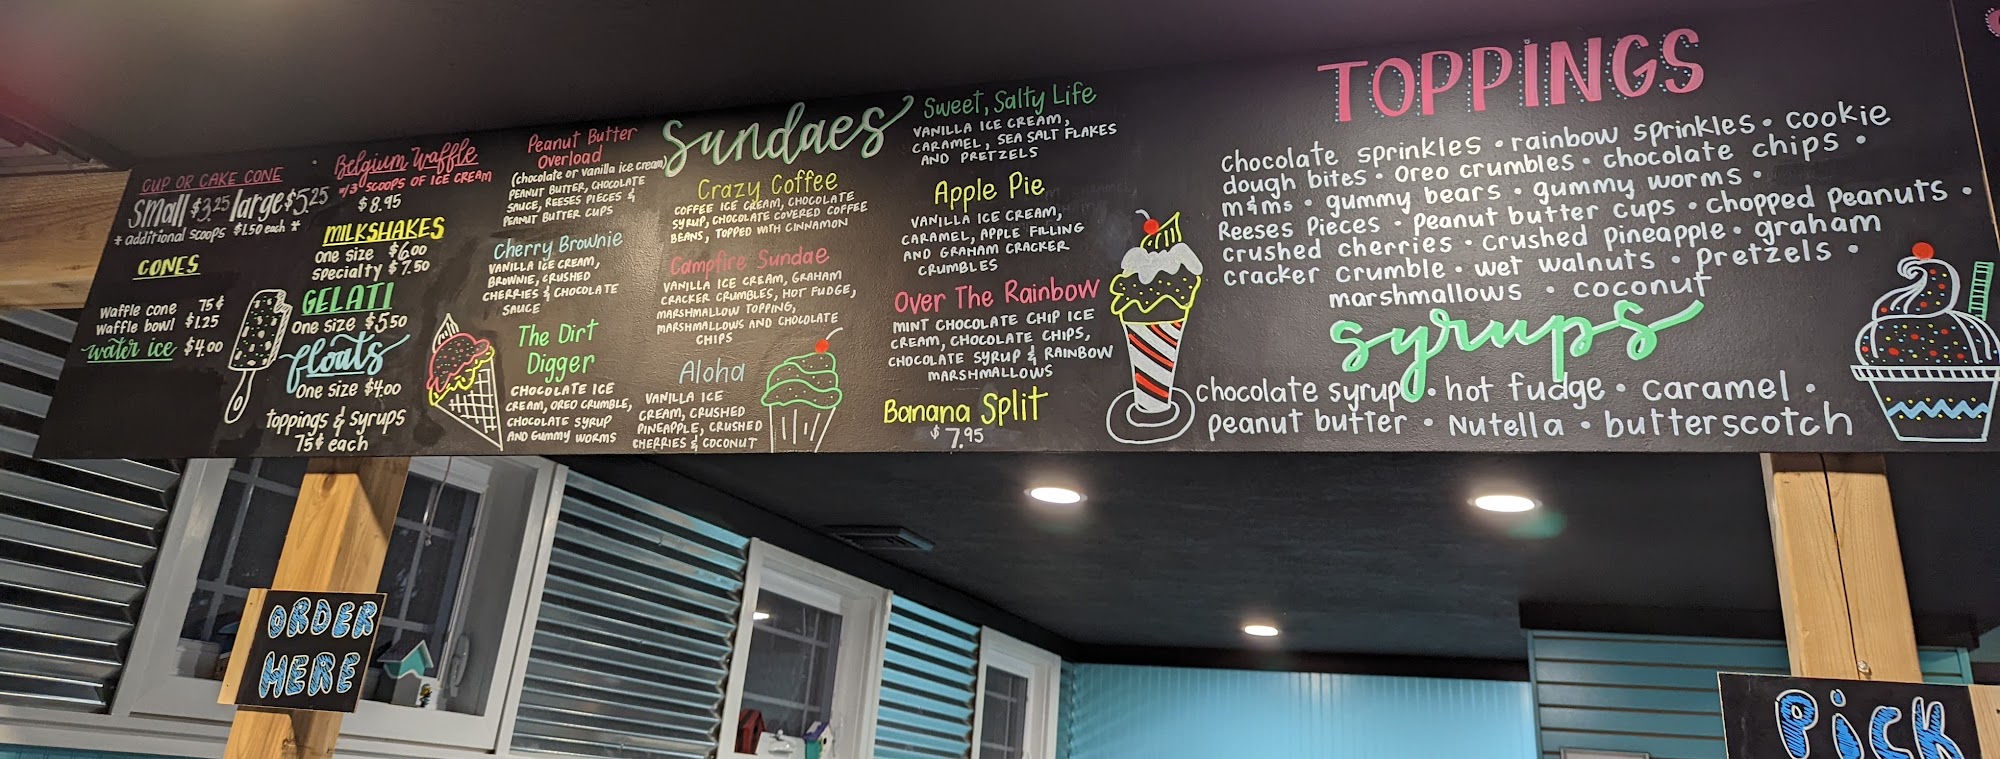 CUP OR CAKE CONE
small $3.25 large $5.25
* additional scoops $1.50 each *
CONES
Waffle cone 75¢
Waffle bowl $1.25
water ice $4.00
Belgium Waffle
w/3 SCOOPS OF ICE CREAM
$8.95
MILKSHAKES
one size $6.00
specialty $7.50
GELATI
One size $5.50
floats
One size $4.00
toppings & syrups
75¢ each
Peanut Butter
Overload
(chocolate or vanilla ice cream)
PEANUT BUTTER, CHOCOLATE
SAUCE, REESES PIECES &
PEANUT BUTTER CUPS
Cherry Brownie
VANILLA ICE CREAM,
BROWNIE, CRUSHED
CHERRIES & CHOCOLATE
SAUCE
The Dirt
Digger
CHOCOLATE ICE
CREAM, OREO CRUMBLE,
CHOCOLATE SYRUP
AND GUMMY WORMS
Sundaes
Crazy Coffee
COFFEE ICE CREAM, CHOCOLATE
SYRUP, CHOCOLATE COVERED COFFEE
BEANS, TOPPED WITH CINNAMON
Campfire Sundae
VANILLA ICE CREAM, GRAHAM
CRACKER CRUMBLES, HOT FUDGE,
MARSHMALLOW TOPPING,
MARSHMALLOWS AND CHOCOLATE
CHIPS
Aloha
VANILLA ICE
CREAM, CRUSHED
PINEAPPLE, CRUSHED
CHERRIES & COCONUT
Sweet, Salty Life
VANILLA ICE CREAM,
CARAMEL, SEA SALT FLAKES
AND PRETZELS
Apple Pie
VANILLA ICE CREAM,
CARAMEL, APPLE FILLING
AND GRAHAM CRACKER
CRUMBLES
Over The Rainbow
MINT CHOCOLATE CHIP ICE
CREAM, CHOCOLATE CHIPS,
CHOCOLATE SYRUP & RAINBOW
MARSHMALLOWS
Banana Split
$7.95
TOPPINGS
Chocolate sprinkles • rainbow sprinkles • cookie
dough bites • Oreo crumbles • chocolate chips •
m&ms • gummy bears • gummy worms •
Reeses Pieces • Peanut butter cups • chopped Peanuts •
crushed cherries • crushed pineapple • graham
cracker crumble • wet walnuts • pretzels •
marshmallows • coconut
syrups
chocolate syrup • hot fudge • caramel •
peanut butter • Nutella • butterscotch
ORDER
HERE
PiCK